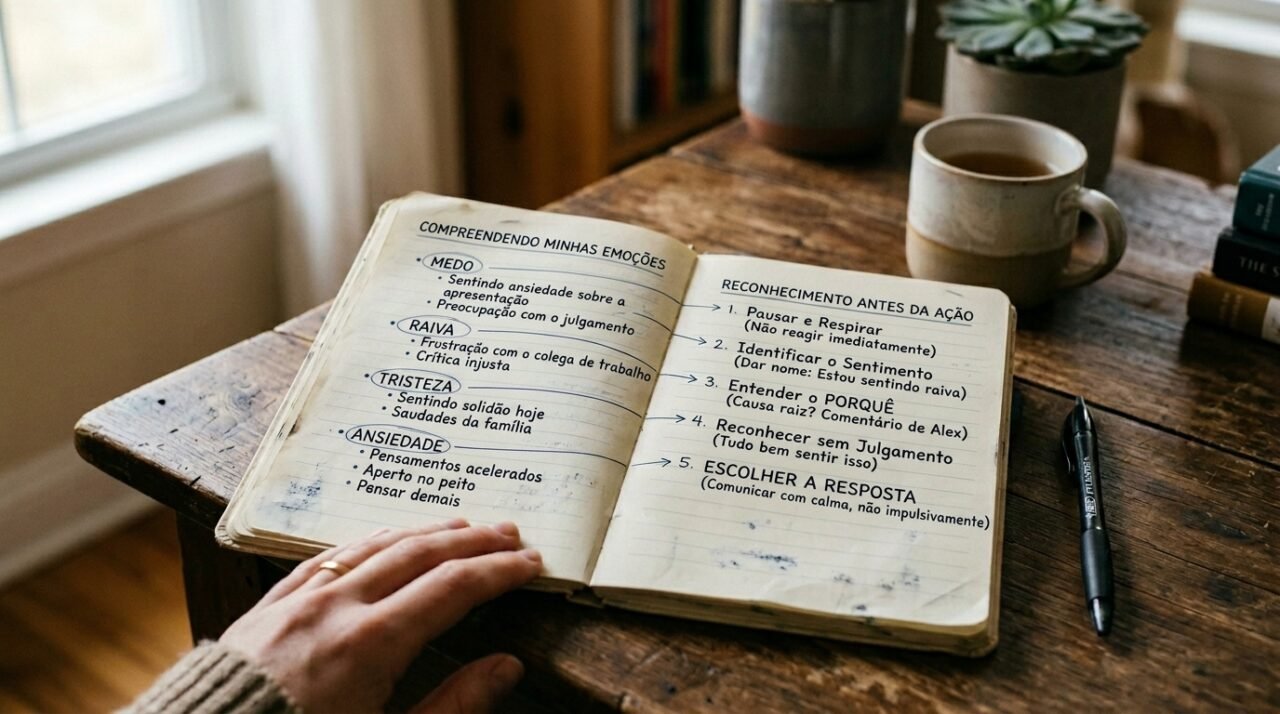 COMPREENDENDO MINHAS EMOÇÕES
• MEDO
• Sentindo ansiedade sobre a
apresentação
• Preocupação com o julgamento
• RAIVA
• Frustração com o colega de trabalho
• Crítica injusta
• TRISTEZA
• Sentindo solidão hoje
• Saudades da família
• ANSIEDADE
• Pensamentos acelerados
• Aperto no peito
• Pensar demais
RECONHECIMENTO ANTES DA AÇÃO
→ 1. Pausar e Respirar
(Não reagir imediatamente)
→ 2. Identificar o Sentimento
(Dar nome: Estou sentindo raiva)
→ 3. Entender o PORQUÊ
(Causa raiz? Comentário de Alex)
→ 4. Reconhecer sem Julgamento
(Tudo bem sentir isso)
→ 5. ESCOLHER A RESPOSTA
(Comunicar com calma, não impulsivamente)
THE